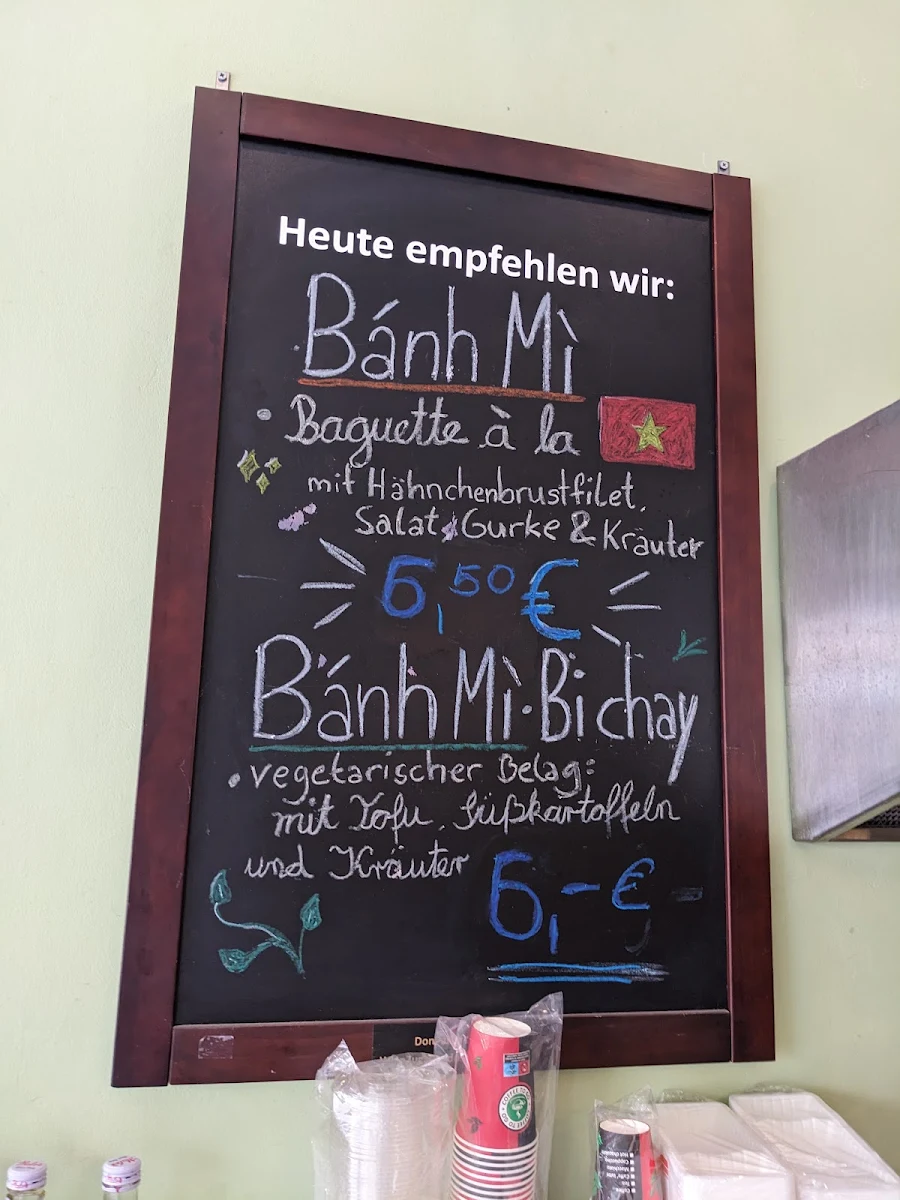 Heute empfehlen wir:
Bánh Mì
• Baguette à la
mit Hähnchenbrustfilet,
Salat, Gurke & Kräuter
6,50 €
Bánh Mì · Bì chay
• vegetarischer Belag:
mit Tofu, Süßkartoffeln
und Kräuter
6,- €
Don
COFFEE TO GO